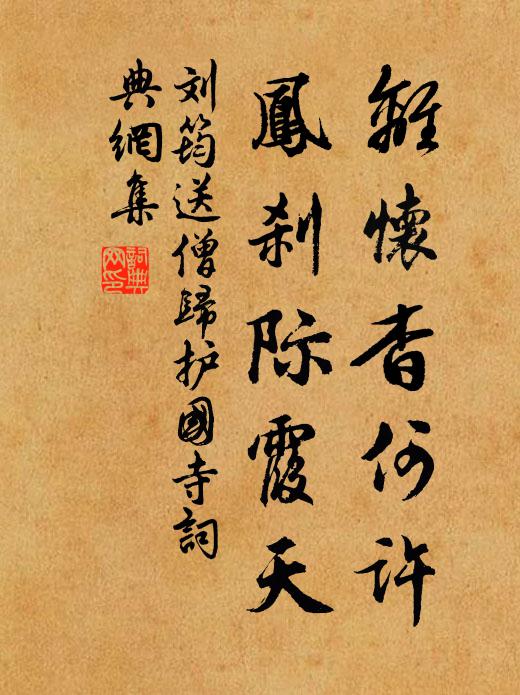 離懷杳何許
鳳刹际霞天
刘筠送僧歸护國寺詞
典網集
詞典
网印